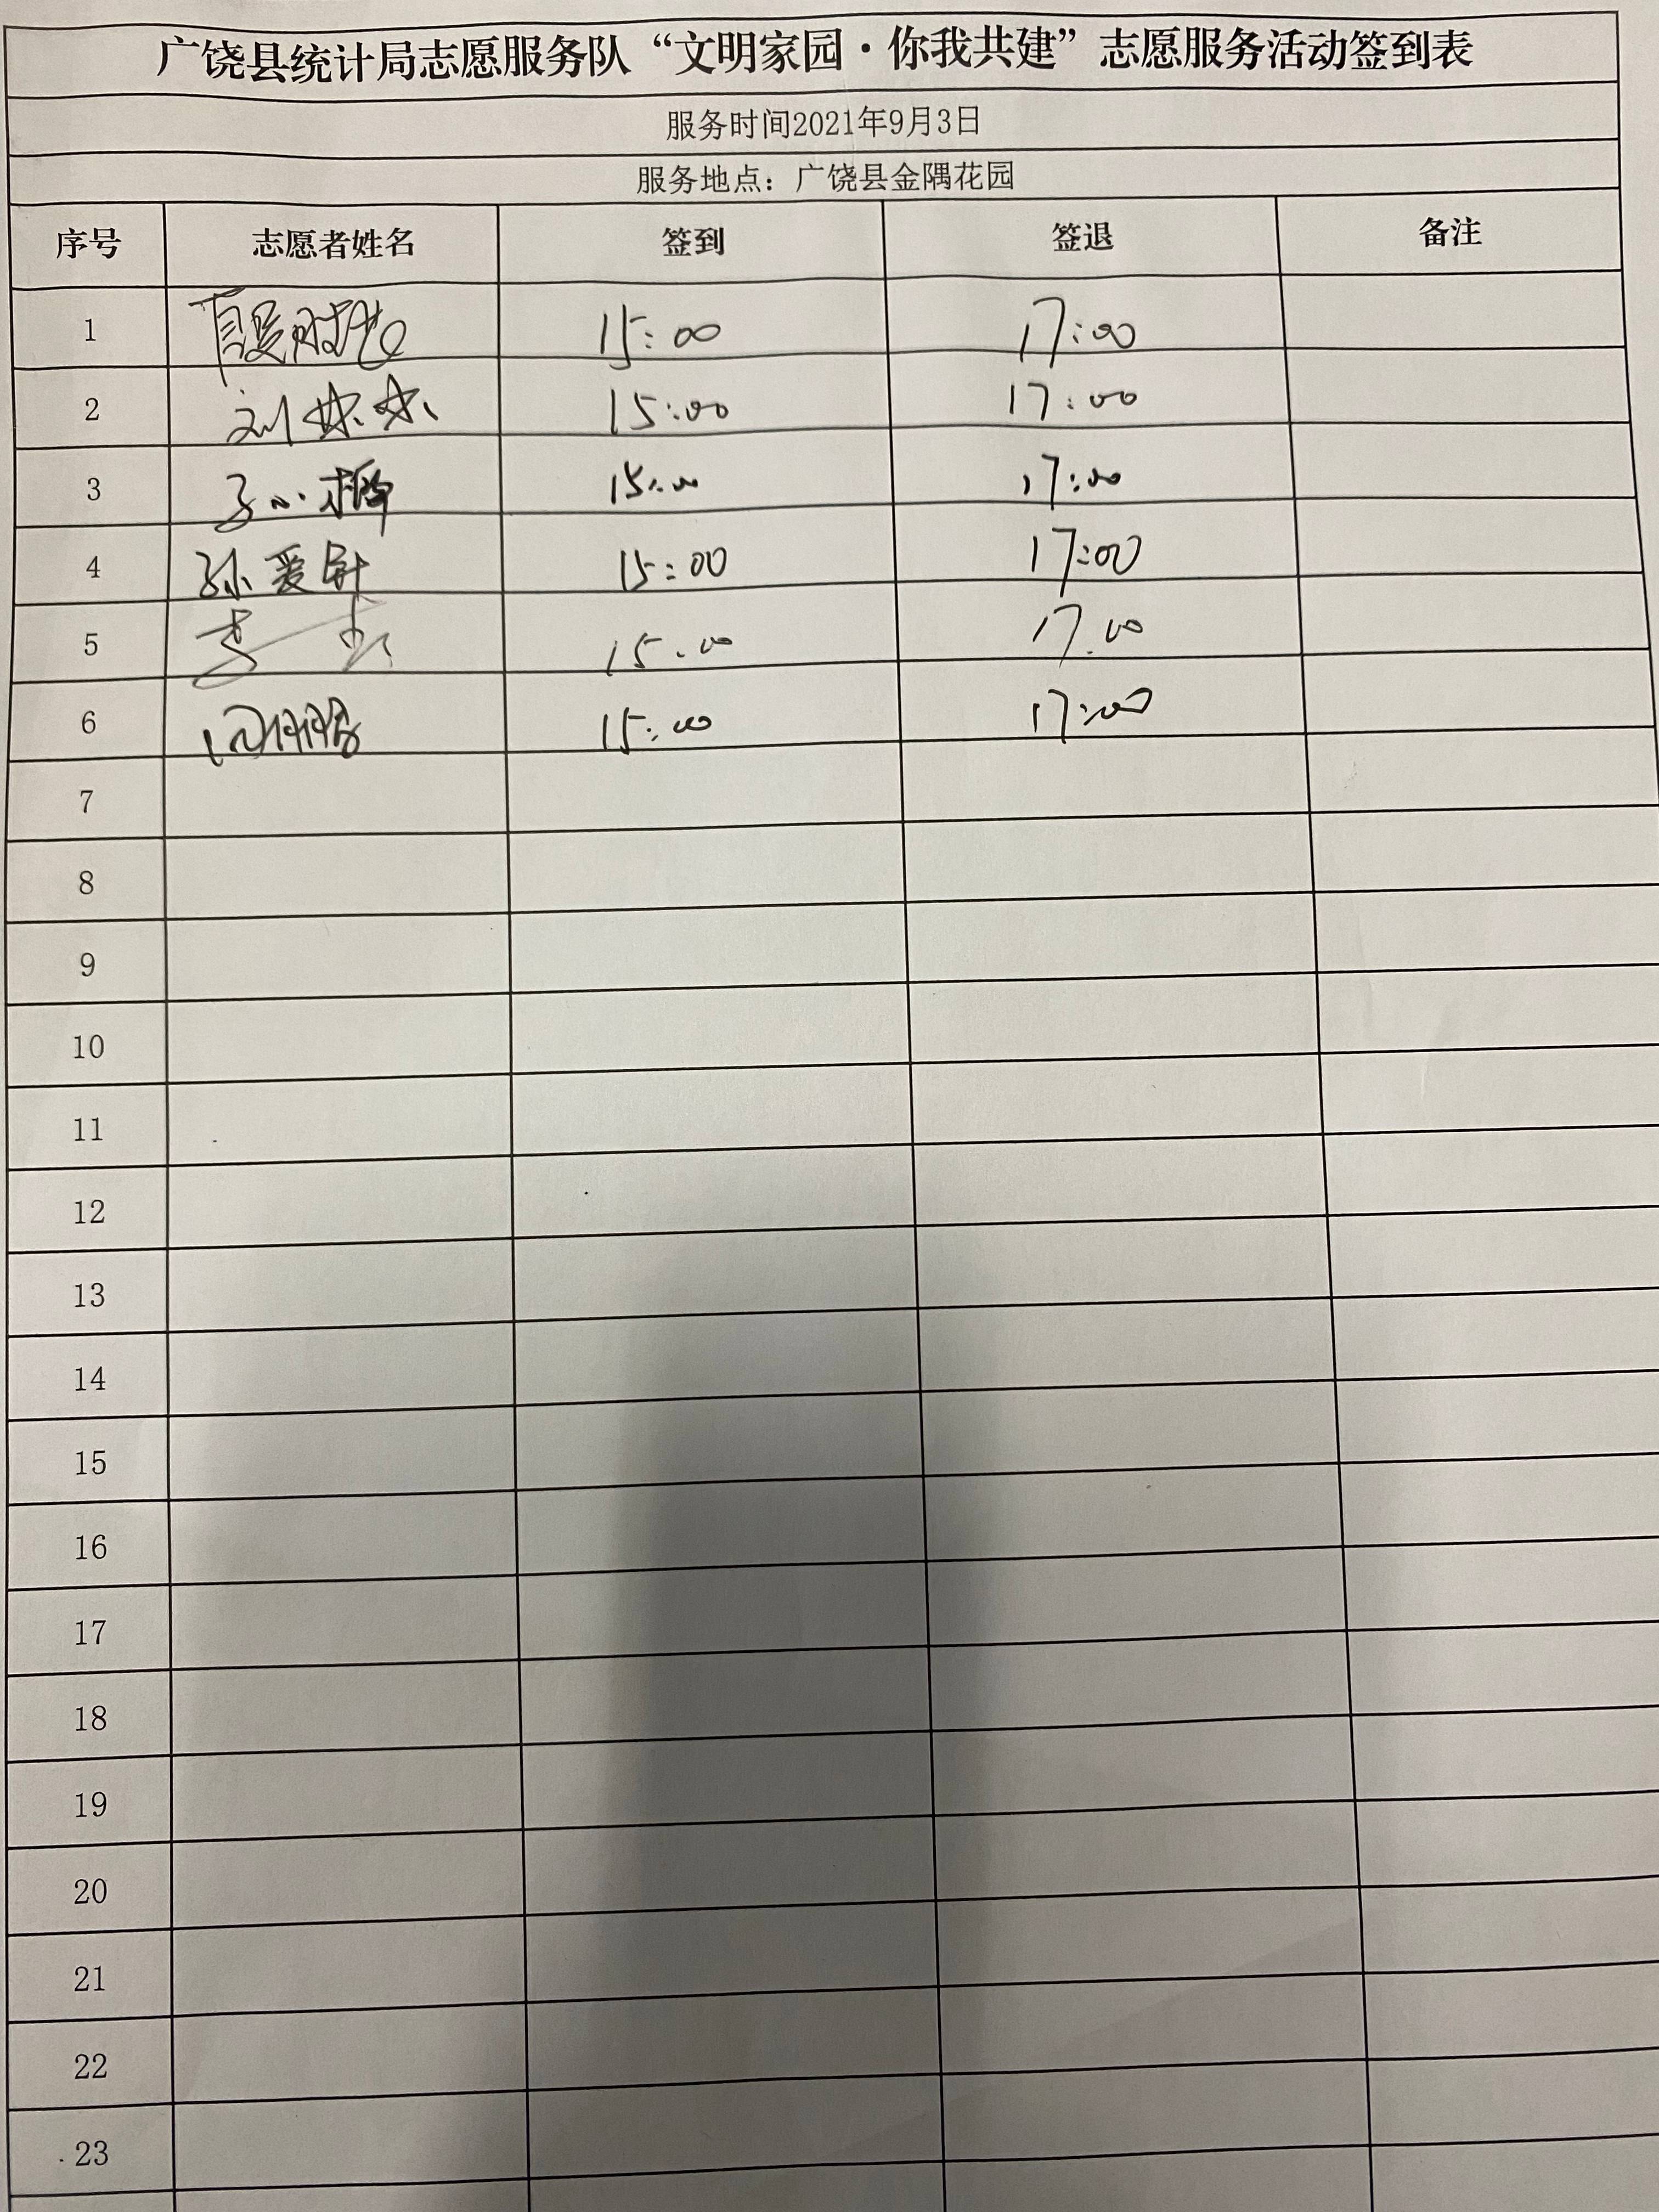 广饶县统计局志愿服务队“文明家园·你我共建”志愿服务活动签到表
服务时间2021年9月3日
服务地点：广饶县金隅花园
序号 志愿者姓名 签到 签退 备注
1 15:00 17:00
2 刘 15:00 17:00
3 15:00 17:00
4 孙爱 15:00 17:00
5 李 15:00 17:00
6 15:00 17:00
7
8
9
10
11
12
13
14
15
16
17
18
19
20
21
22
23